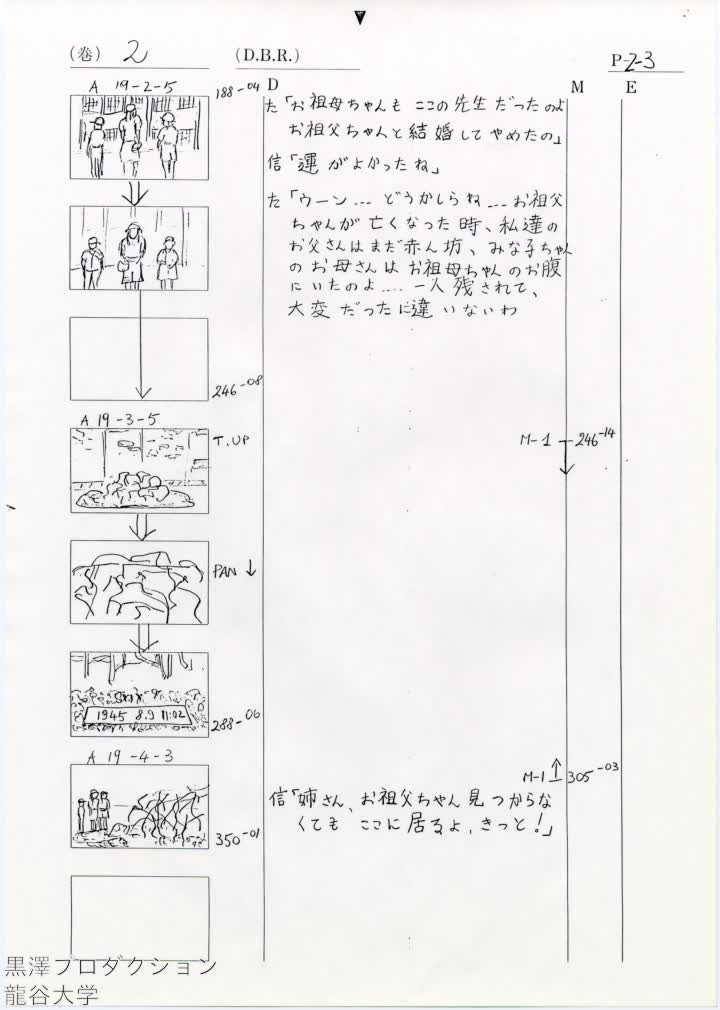 (巻) 2 (D.B.R.) P-2-3
D M E
A 19-2-5
188-04
た「お祖母ちゃんも ここの先生だったのよ
お祖父ちゃんと結婚してやめたの」
信「運がよかったね」
た「ウーン... どうかしらね... お祖父
ちゃんが亡くなった時、私達の
お父さんはまだ赤ん坊、みな子ちゃん
のお母さんはお祖母ちゃんのお腹
にいたのよ.... 一人残されて、
大変だったに違いないわ
246-08
A 19-3-5
T.UP
M-1 246-14
PAN ↓
1945 8.9 11:02
288-06
A 19-4-3
M-1 305-03
信「姉さん、お祖父ちゃん見つからな
くても ここに居るよ、きっと!」
350-01
黒澤プロダクション
龍谷大学